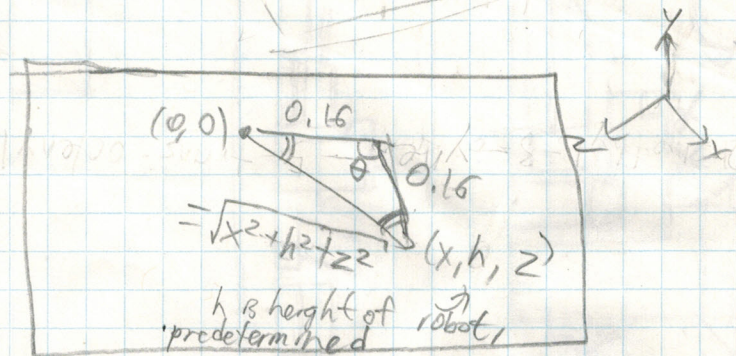 y
(0,0) 0.16
z
x
θ 0.16
=√x²+h²+z² (x, h, z)
h is height of robot,
predetermined